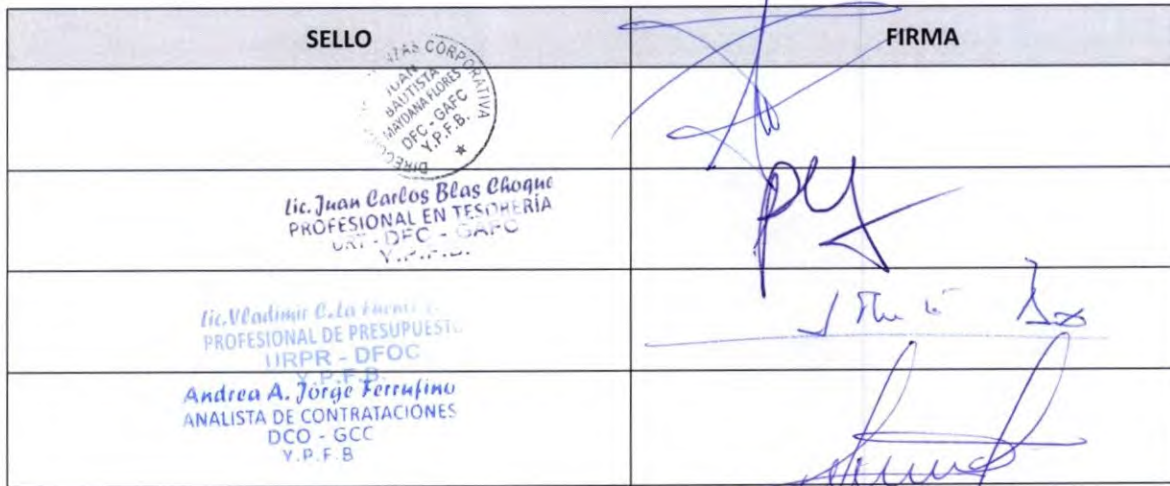 SELLO FIRMA
CORPORATIVA
JUAN
BAUTISTA
MAYDANA FLORES
DFC - GAFC
Y.P.F.B.
Lic. Juan Carlos Blas Choque
PROFESIONAL EN TESORERÍA
DFC - GAFC
Lic. Vladimir C. La
PROFESIONAL DE PRESUPUESTO
URPR - DFOC
Y.P.F.B.
Andrea A. Jorge Ferrufino
ANALISTA DE CONTRATACIONES
DCO - GCC
Y.P.F.B